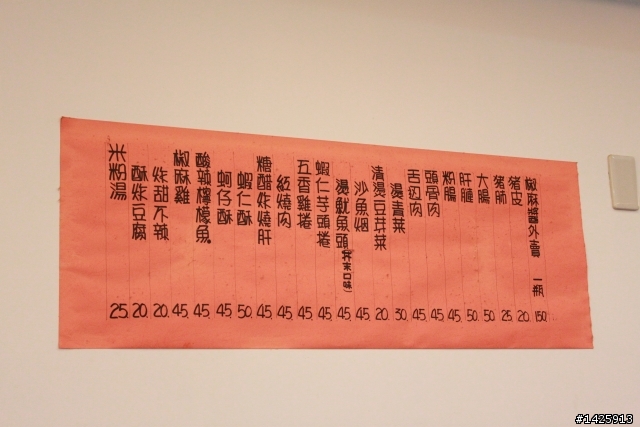 米粉湯 25.
酥炸豆腐 20.
炸甜不辣 20.
椒麻雞 45.
酸辣檸檬魚 45.
蚵仔酥 45.
蝦仁酥 50.
糖醋炸燒肝 45.
紅燒肉 45.
五香雞捲 45.
蝦仁芋頭捲 45.
湯魷魚頭(芥末口味) 45.
沙魚烟 45.
清湯豆芽菜 20.
湯青菜 30.
舌边肉 45.
頭骨肉 45.
粉腸 45.
肝腱 50.
大腸 50.
豬肺 25.
豬皮 20.
椒麻醬外賣 一瓶 150.
#1425913